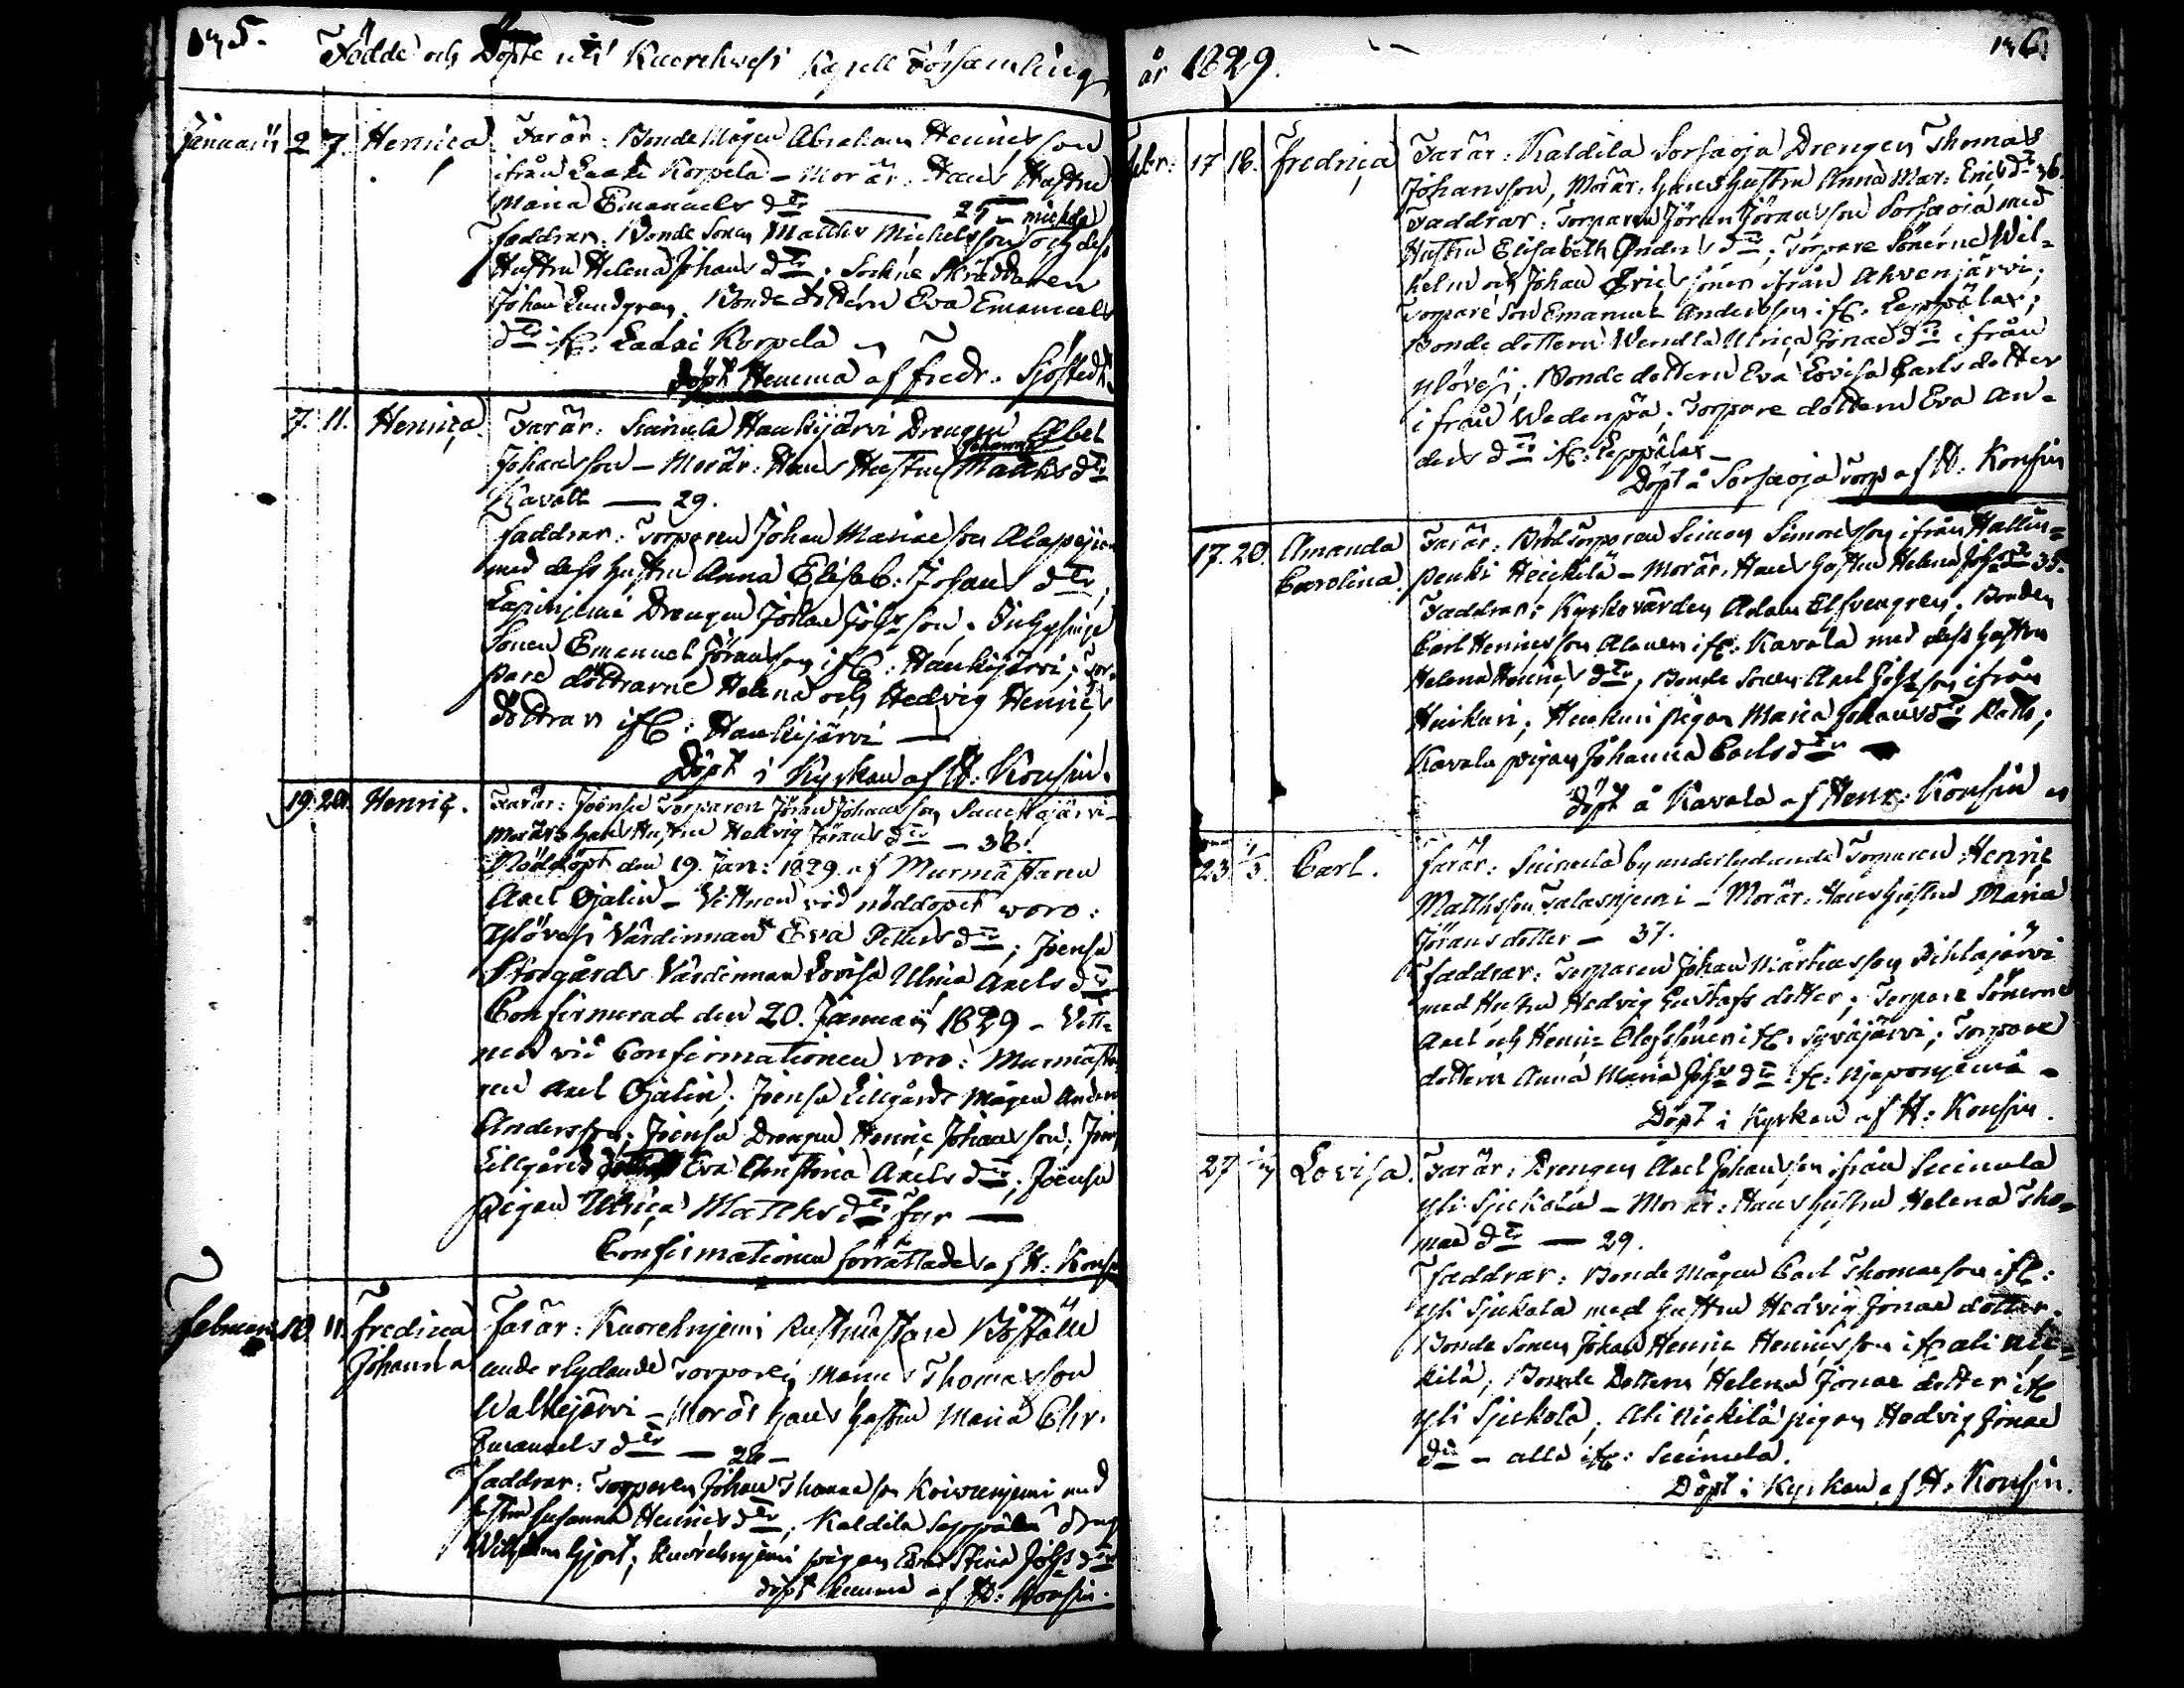 Födde och Döpte uti Kuorehwesi Kapell Församling
Januarii 2 7. Henrica Far är: Bonde Mågen Abraham Henricsson
ifrån Laaki Korpela – Mor är: Hans Hustru
Maria Emanuels dr — 25 –
Faddrar: Bonde Sonen Matths Michelsson och dess
Hustru Helena Johans dr. Sockne Skräddaren
Johan Lundgren. Bonde dottern Eva Emanuels
dr ifr: Korpela
Döpt Hemma af Fredr. Sjöstedt.
7. 11. Henrica. Far är: Suinula Haukijärvi Drengen Abel
Johansson – Mor är: Hans Hustru Johanna Matths dr
Kavall — 29.
Faddrar: Torparen Johan
med dess hustru Anna Elisab: Johans dr,
Drengen Johan Johs son;
Sonen Emanuel Göransson ifr: Haukijärvi; Tor-
pare döttrarne Helena och Hedvig Henrics
döttrar ifr: Haukijärvi —
Döpt i Kyrkan af H: Konsin.
19. 20. Henric. Far är: Joensu Torparen Göran Johansson
Mor är hans Hustru Hedvig Görans dr — 38.
Nöddöpt den 19. Jan: 1829 af Murmästaren
Axel Ojalin – Vittnen vid nöddopet woro:
Ylövesi Värdinnan Eva Petters dr; Joensu
Storgårds Värdinnan Lovisa Ulrica Axels dr
Confirmerad den 20. Januarii 1829 – Vitt-
nen vid Confirmationen voro: Murmästa
ren Axel Ojalin; Joensu Lillgårds Mågen Anders
Andersson; Joensu Drengen Henric Johansson;
Lillgårds Eva Christina Axels dr; Joensu
Pigan Ulrica Matths dr Fyr —
Confirmationen förrättades af H: Konsin
Februari 10. 11. Fredrica Far är: Kuorehnjemi Rustmästare Boställe
Johanna underlydande Torparen Thomasson
Walkejärvi – Mor är hans hustru Maria Chr.
Emanuels dr — 26 –
Faddrar: Torparen Johan Thomasson Koivunjemi med
hustru Susanna Henrics dr; Kaldila Seppälä dreng
Wilhelm Hjort; Kuorehnjemi pigan Stina Johs dr
döpt hemma af H: Konsin.
år 1829.
Febr: 17 18. Fredrica Far är: Kaldila Sorsaoja Drengen Thomas
Johansson, Mor är: hans hustru Anna Mar: Erics dr 36.
Faddrar: Torparen Göran Göransson Sorsaoja med
Hustru Elisabeth Anders dr; Torpare Sönerne Wil-
helm och Johan Erics söner ifrån Ahvenjärvi;
Torpare Son Emanuel Andersson ifr. Leppälax;
Bonde dottern Wendla Ulrica Jonae dr ifrån
Ylövesi; Bonde dottern Eva Lovisa Carls dotter
ifrån Wedenpä; Torpare dottern Eva An-
ders dr ifr: Leppälax –
Döpt å Sorsaoja torp af H: Konsin
17. 20. Amanda Far är: Torparen Simon Simonsson ifrån Hallin-
Carolina. penki Heickilä – Mor är: Hans Hustru Helena Johs dr 35.
Faddrar: Kyrkovärden Adam Elfvengren; Bonden
Carl Henricsson ifr. Kavala med dess hustru
Helena Henrics dr, Bonde Sonen Axel Johs son ifrån
pigan Maria Johans dr
Kavala pigan Johanna Carls dr
döpt å Kavala af Henr: Konsin
23. 1/3. Carl. Far är: Suinula by underlydande Torparen Henric
Matthsson Talasnjemi – Mor är: Hans hustru Maria
Görans dotter — 37.
Faddrar: Torparen Johan Mårtensson Pihlajärvi
med Hustru Hedvig Gustafs dotter; Torpare Sönerne
Axel och Henric Olofssöner ifr. Syväjärvi; Torpare
dottern Anna Maria Johs dr ifr:
Döpt i Kyrkan af H: Konsin.
27 Lovisa. Far är: Drengen Axel Johansson ifrån Suinula
Yli Sjukola – Mor är: Hans hustru Helena Tho-
mae dr — 29.
Faddrar: Bonde Mågen Carl Thomasson ifr:
Yli Sjukola med hustru Hedvig Jonae dotter.
Bonde Sonen Johan Henric Henricsson ifr. Ali Nic-
kilä; Bonde Dottern Helena Jonae dotter ifr
Yli Sjukola; Ali Nickilä pigan Hedvig Jonae
dr – alla ifr: Suinula.
Döpt i Kyrkan af H: Konsin.